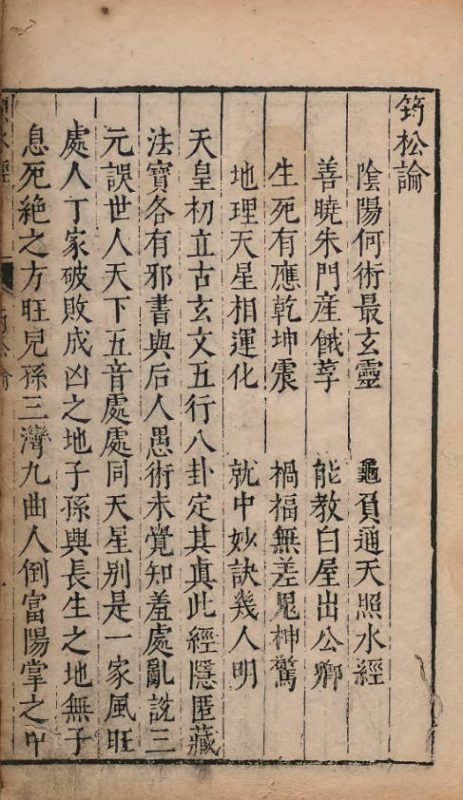 筠松論
陰陽何術最玄靈　龜負通天照水經
善曉朱門産餓莩　能教白屋出公卿
生死有應乾坤震　禍福無差鬼神驚
地理天星相運化　就中妙訣幾人明
天皇初立古玄文五行八卦定其真此經隱匿藏
法寶各有邪書與后人愚術未覺知羞處亂說三
元誤世人天下五音處處同天星别是一家風旺
處人丁家破敗成凶之地子孫興長生之地無子
息死絶之方旺兒孫三灣九曲人倒富陽掌之中